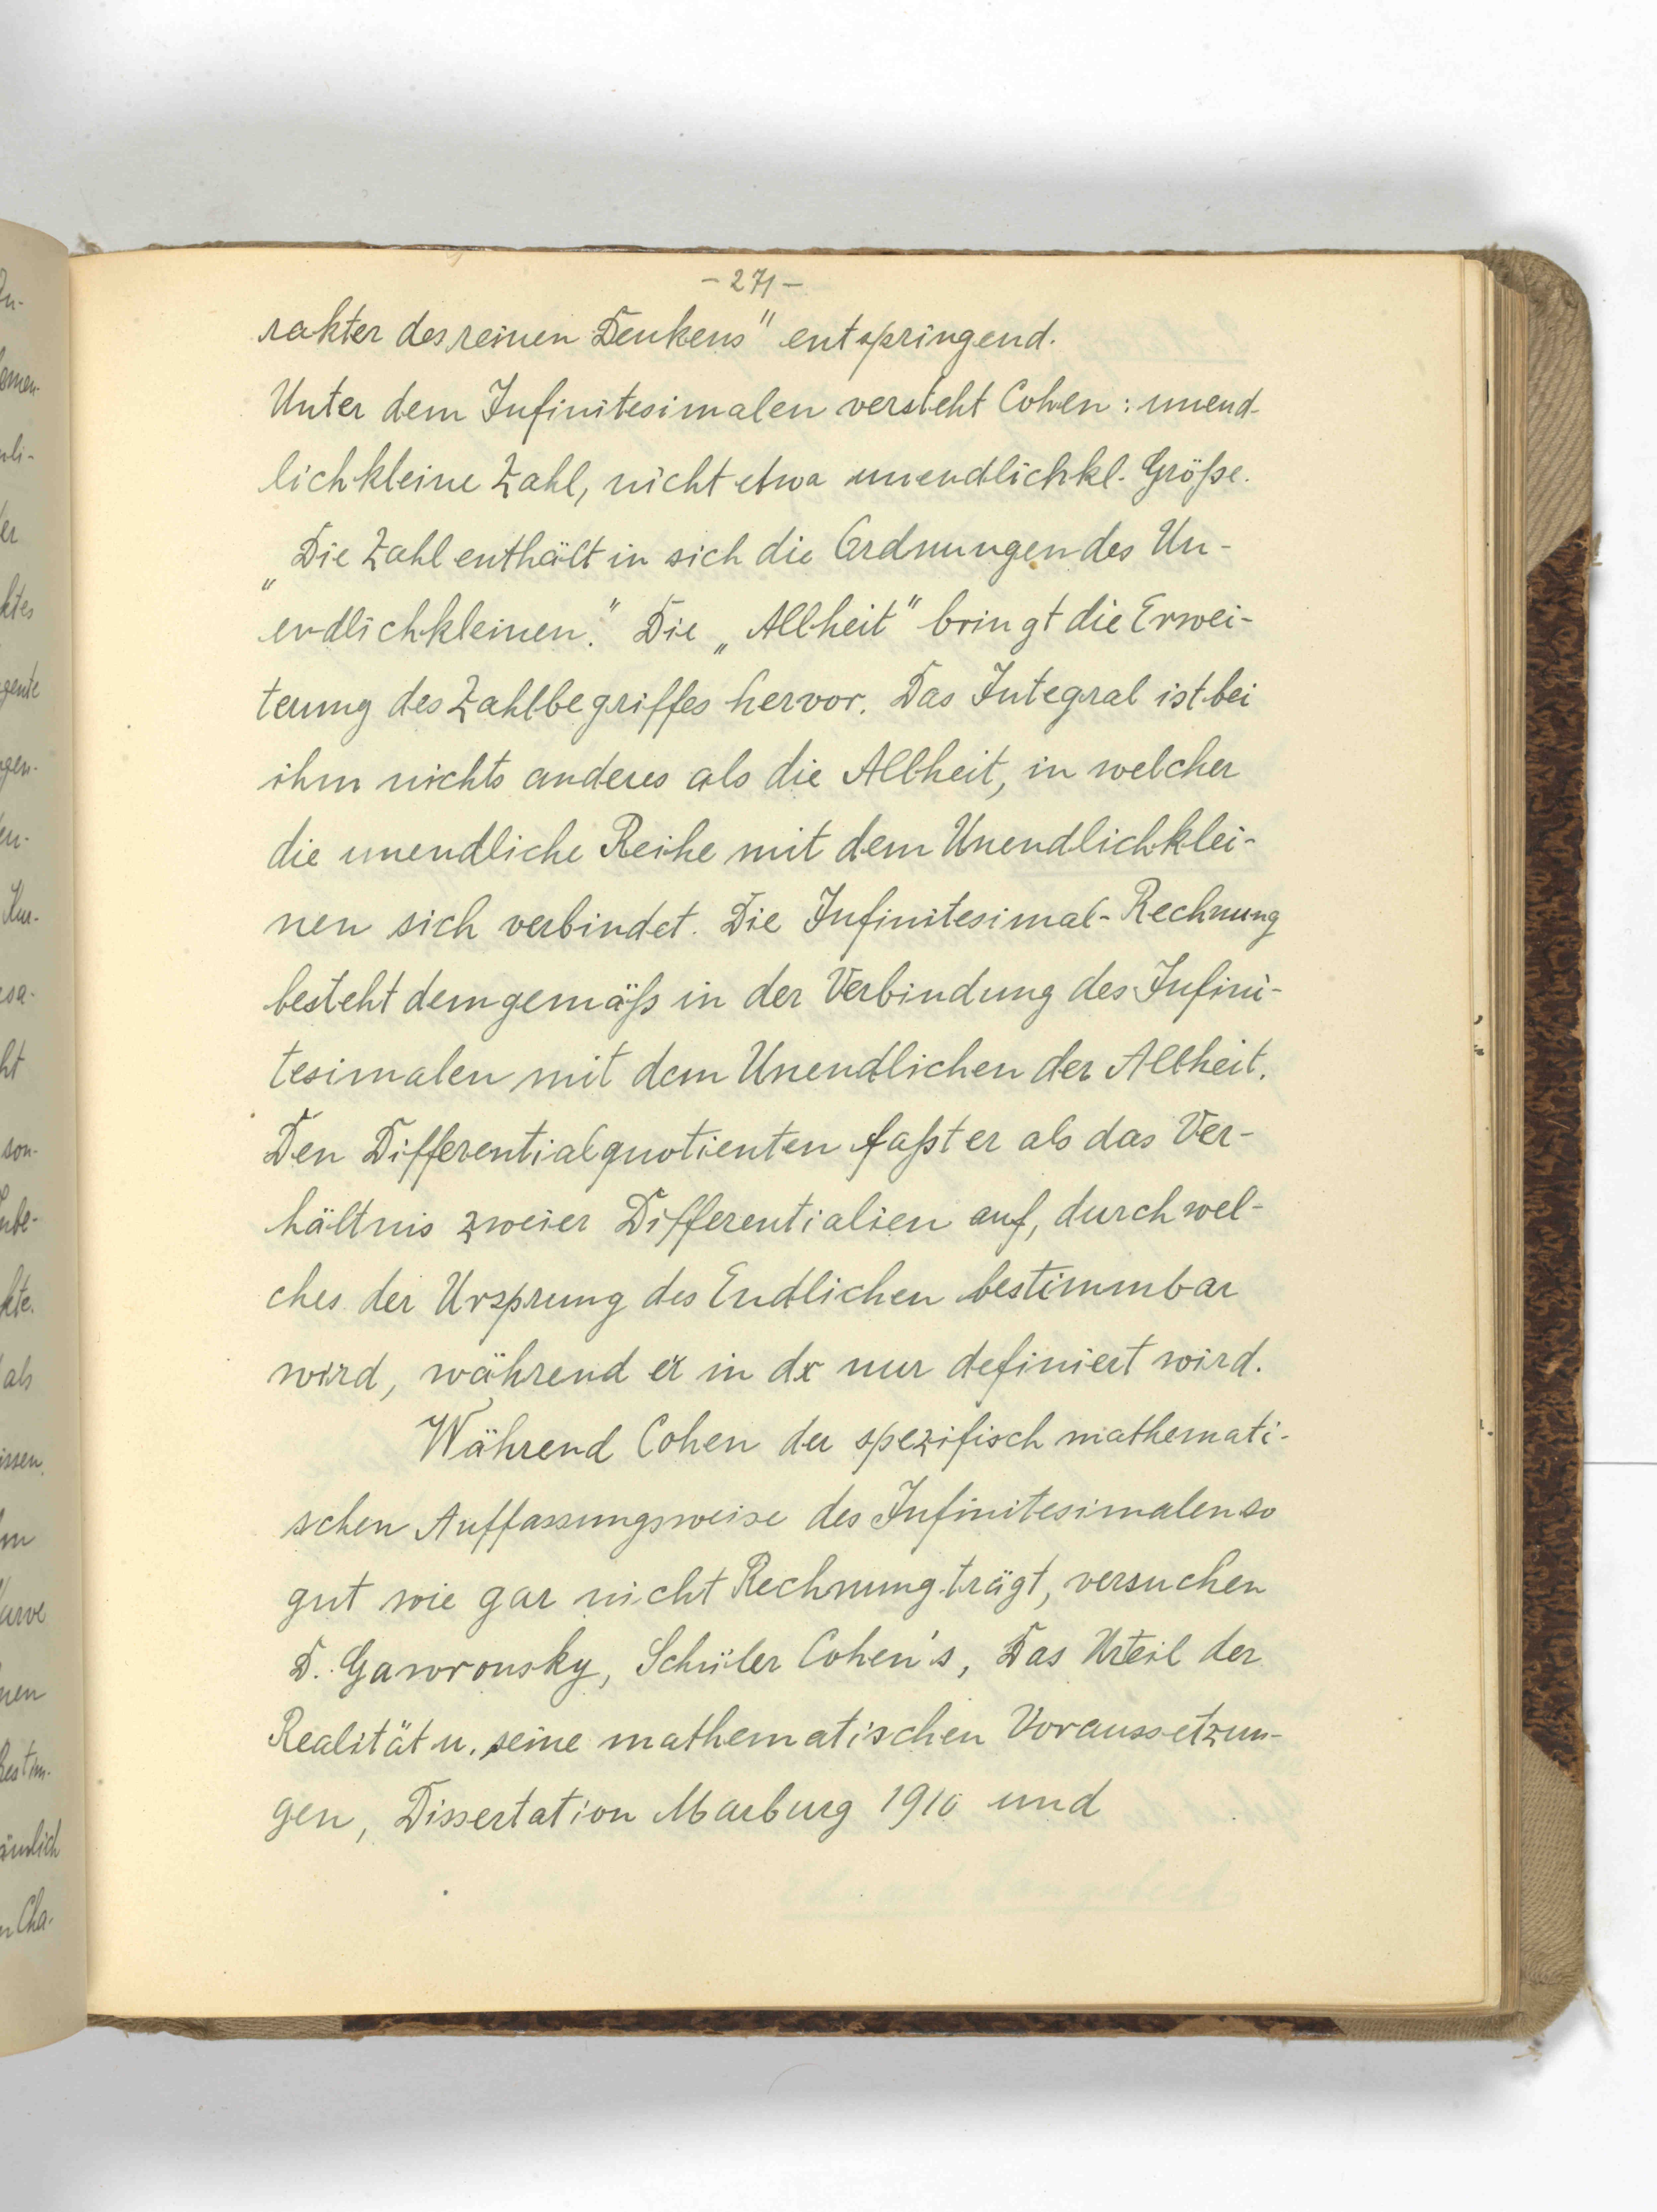 - 271 -
rakter des reinen Denkens" entspringend.
Unter dem Infinitesimalen versteht Cohen: unend-
lichkleine Zahl, nicht etwa unendlichkl. Größe.
„Die Zahl enthält in sich die Ordnungen des Un-
endlichkleinen." Die „Allheit" bringt die Erwei-
terung des Zahlbegriffes hervor. Das Integral ist bei
ihm nichts anderes als die Allheit, in welcher
die unendliche Reihe mit dem Unendlichklei-
nen sich verbindet. Die Infinitesimal-Rechnung
besteht demgemäß in der Verbindung des Infini-
tesimalen mit dem Unendlichen der Allheit.
Den Differentialquotienten faßt er als das Ver-
hältnis zweier Differentialien auf, durch wel-
ches der Ursprung des Endlichen bestimmbar
wird, während er in dx nur definiert wird.
Während Cohen der spezifisch mathemati-
schen Auffassungsweise des Infinitesimalen so
gut wie gar nicht Rechnung trägt, versuchen
D. Gawronsky, Schüler Cohen's, Das Urteil der
Realität u. seine mathematischen Voraussetzun-
gen, Dissertation Marburg 1910 und